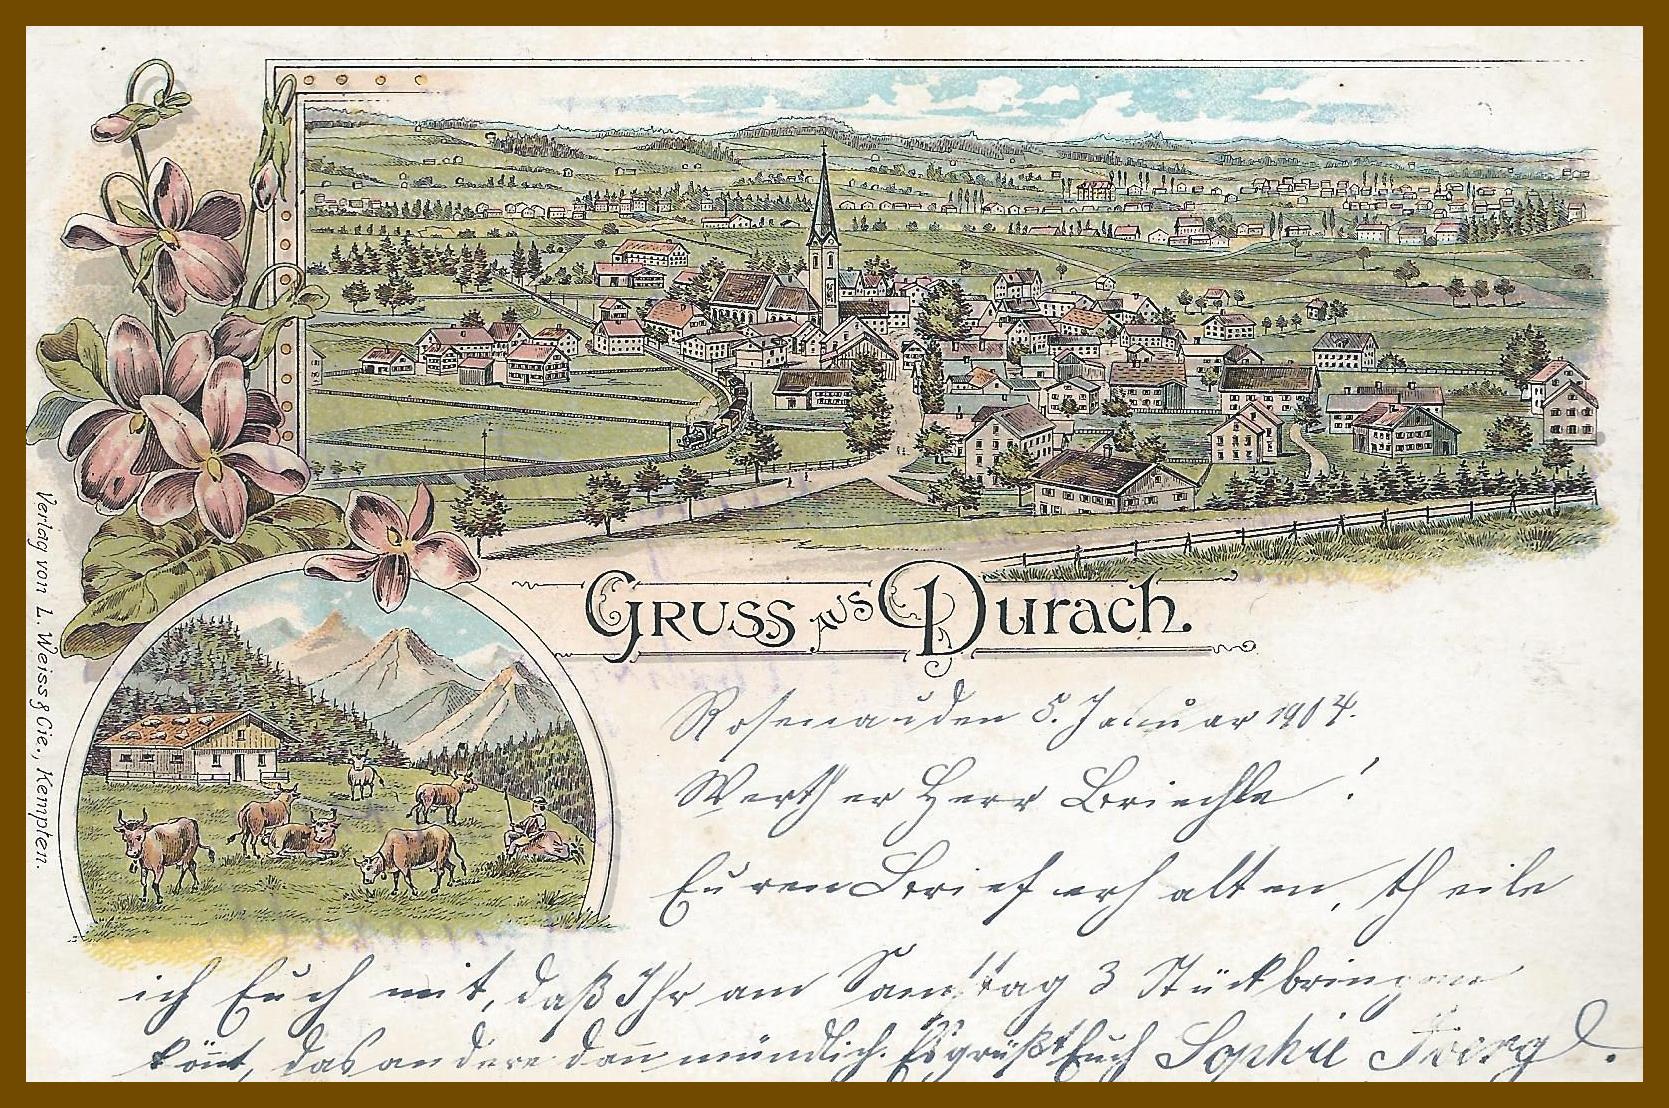 GRUSS AUS Durach.
Verlag von L. Weiss & Cie., Kempten.
Rosenau den 5. Januar 1904.
Werther Herr Briechle!
Euren Brief erhalten, theile
ich Euch mit, daß Ihr am Samstag 3 Stück bringen
könnt, das andere dann mündlich. Es grüßt Euch Sophie